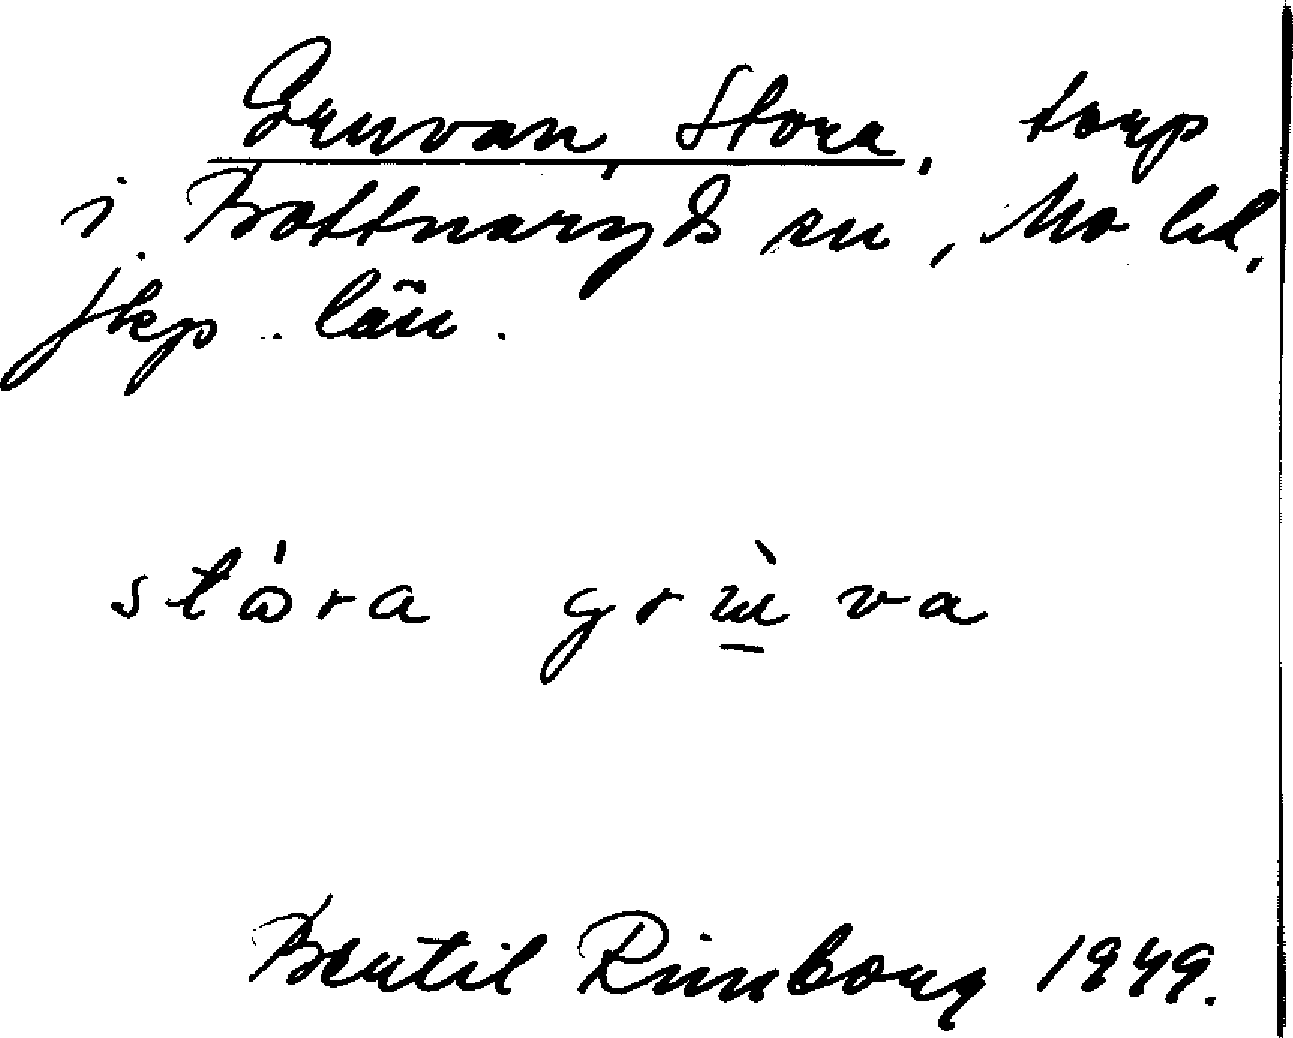 Gruvan, Stora, torp
i Bottnaryds sn, Mo hd,
Jkp. län.
stó̤ra grù̱va
Bertil Rimborg 1949.